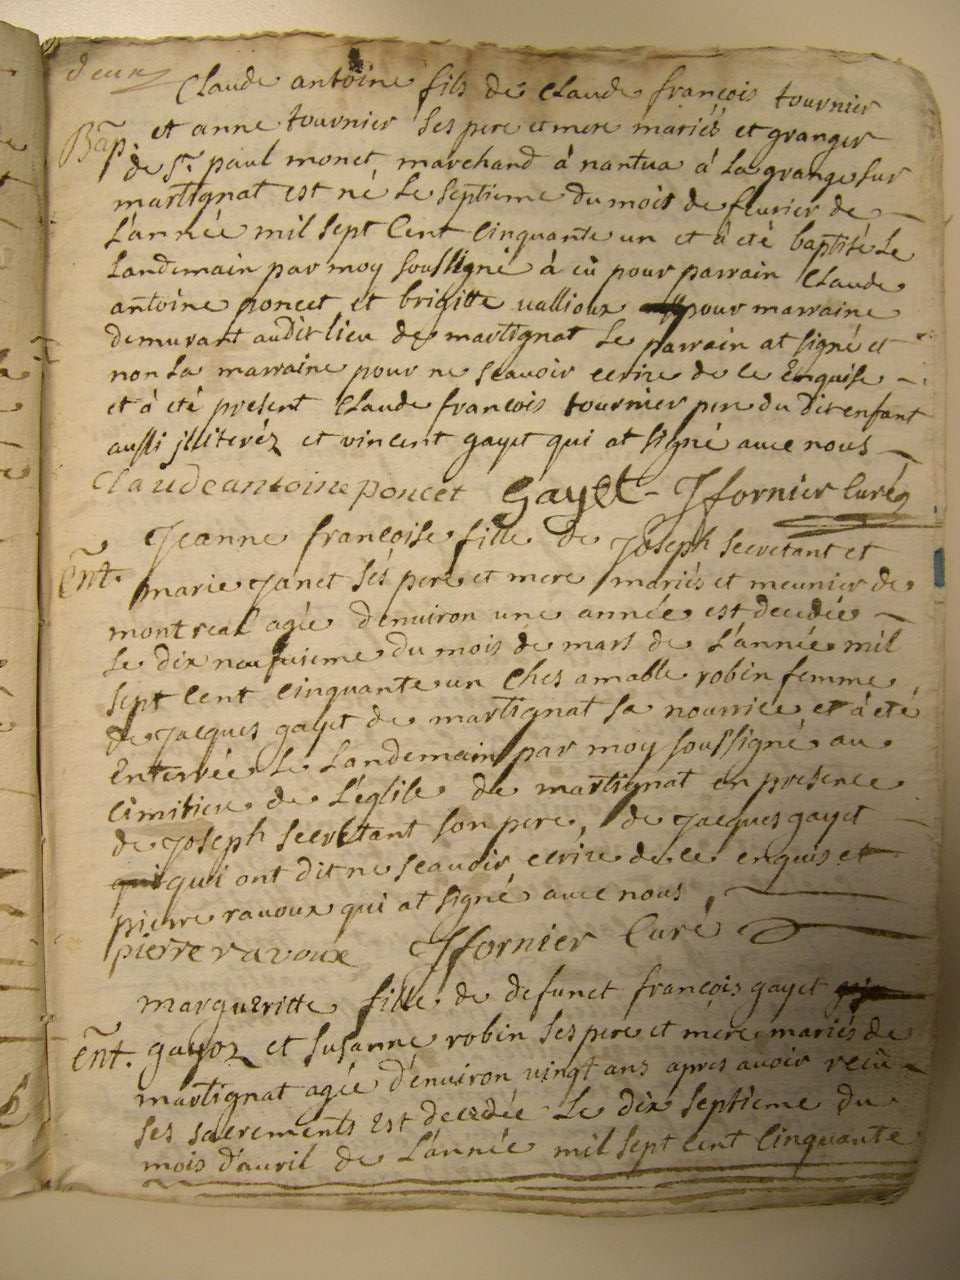 deux
Claude antoine fils de Claude françois tournier
Bap. et anne tournier ses pere et mere mariés et granger
de Sr. paul monet marchand à nantua à La grange sur
martignat est né Le septieme du mois de feurier de
L'année mil sept Cent Cinquante un et à été baptisé Le
Landemain par moy soussigné à eü pour parrain Claude
antoine poncet et brigitte uallioux pour marraine
demurant audit lieu de martignat Le parrain at signé et
non La marraine pour ne scauoir ecrire de ce Enquise
et à été present Claude françois tournier pere du Dit enfant
aussi jlliteréz et vincent gayet qui at signé auec nous
Claude antoine poncet Gayet - Jfornier Curé
Jeanne françoise fille de Joseph secretant et
Ent. marie Janet sés pere et mere mariés et meunier de
montreal agée d'enuiron une année est decedée
Le dix neufuieme du mois de mars de L'année mil
sept Cent Cinquante un Ches amable robin femme
de Jacques gayet de martignat sa nourrice et à été
Enterrée Le Landemain par moy soussigné au
Cimitiere de L'église de martignat en presence
de Joseph secretant son pere, de Jacques gayet
qui ont dit ne scauoir ecrire de ce enquis et
pierre rauoux qui at signé auec nous,
pierre ravoux Jfornier Curé
margueritte fille de defunct françois gayet
Ent. gayoz et susanne robin ses pere et mere mariés de
martignat agée d'enuiron vingt ans apres auoir reçü
ses sacrements Est decedée Le dix septieme du
mois d'auril de L'année mil sept cent Cinquante